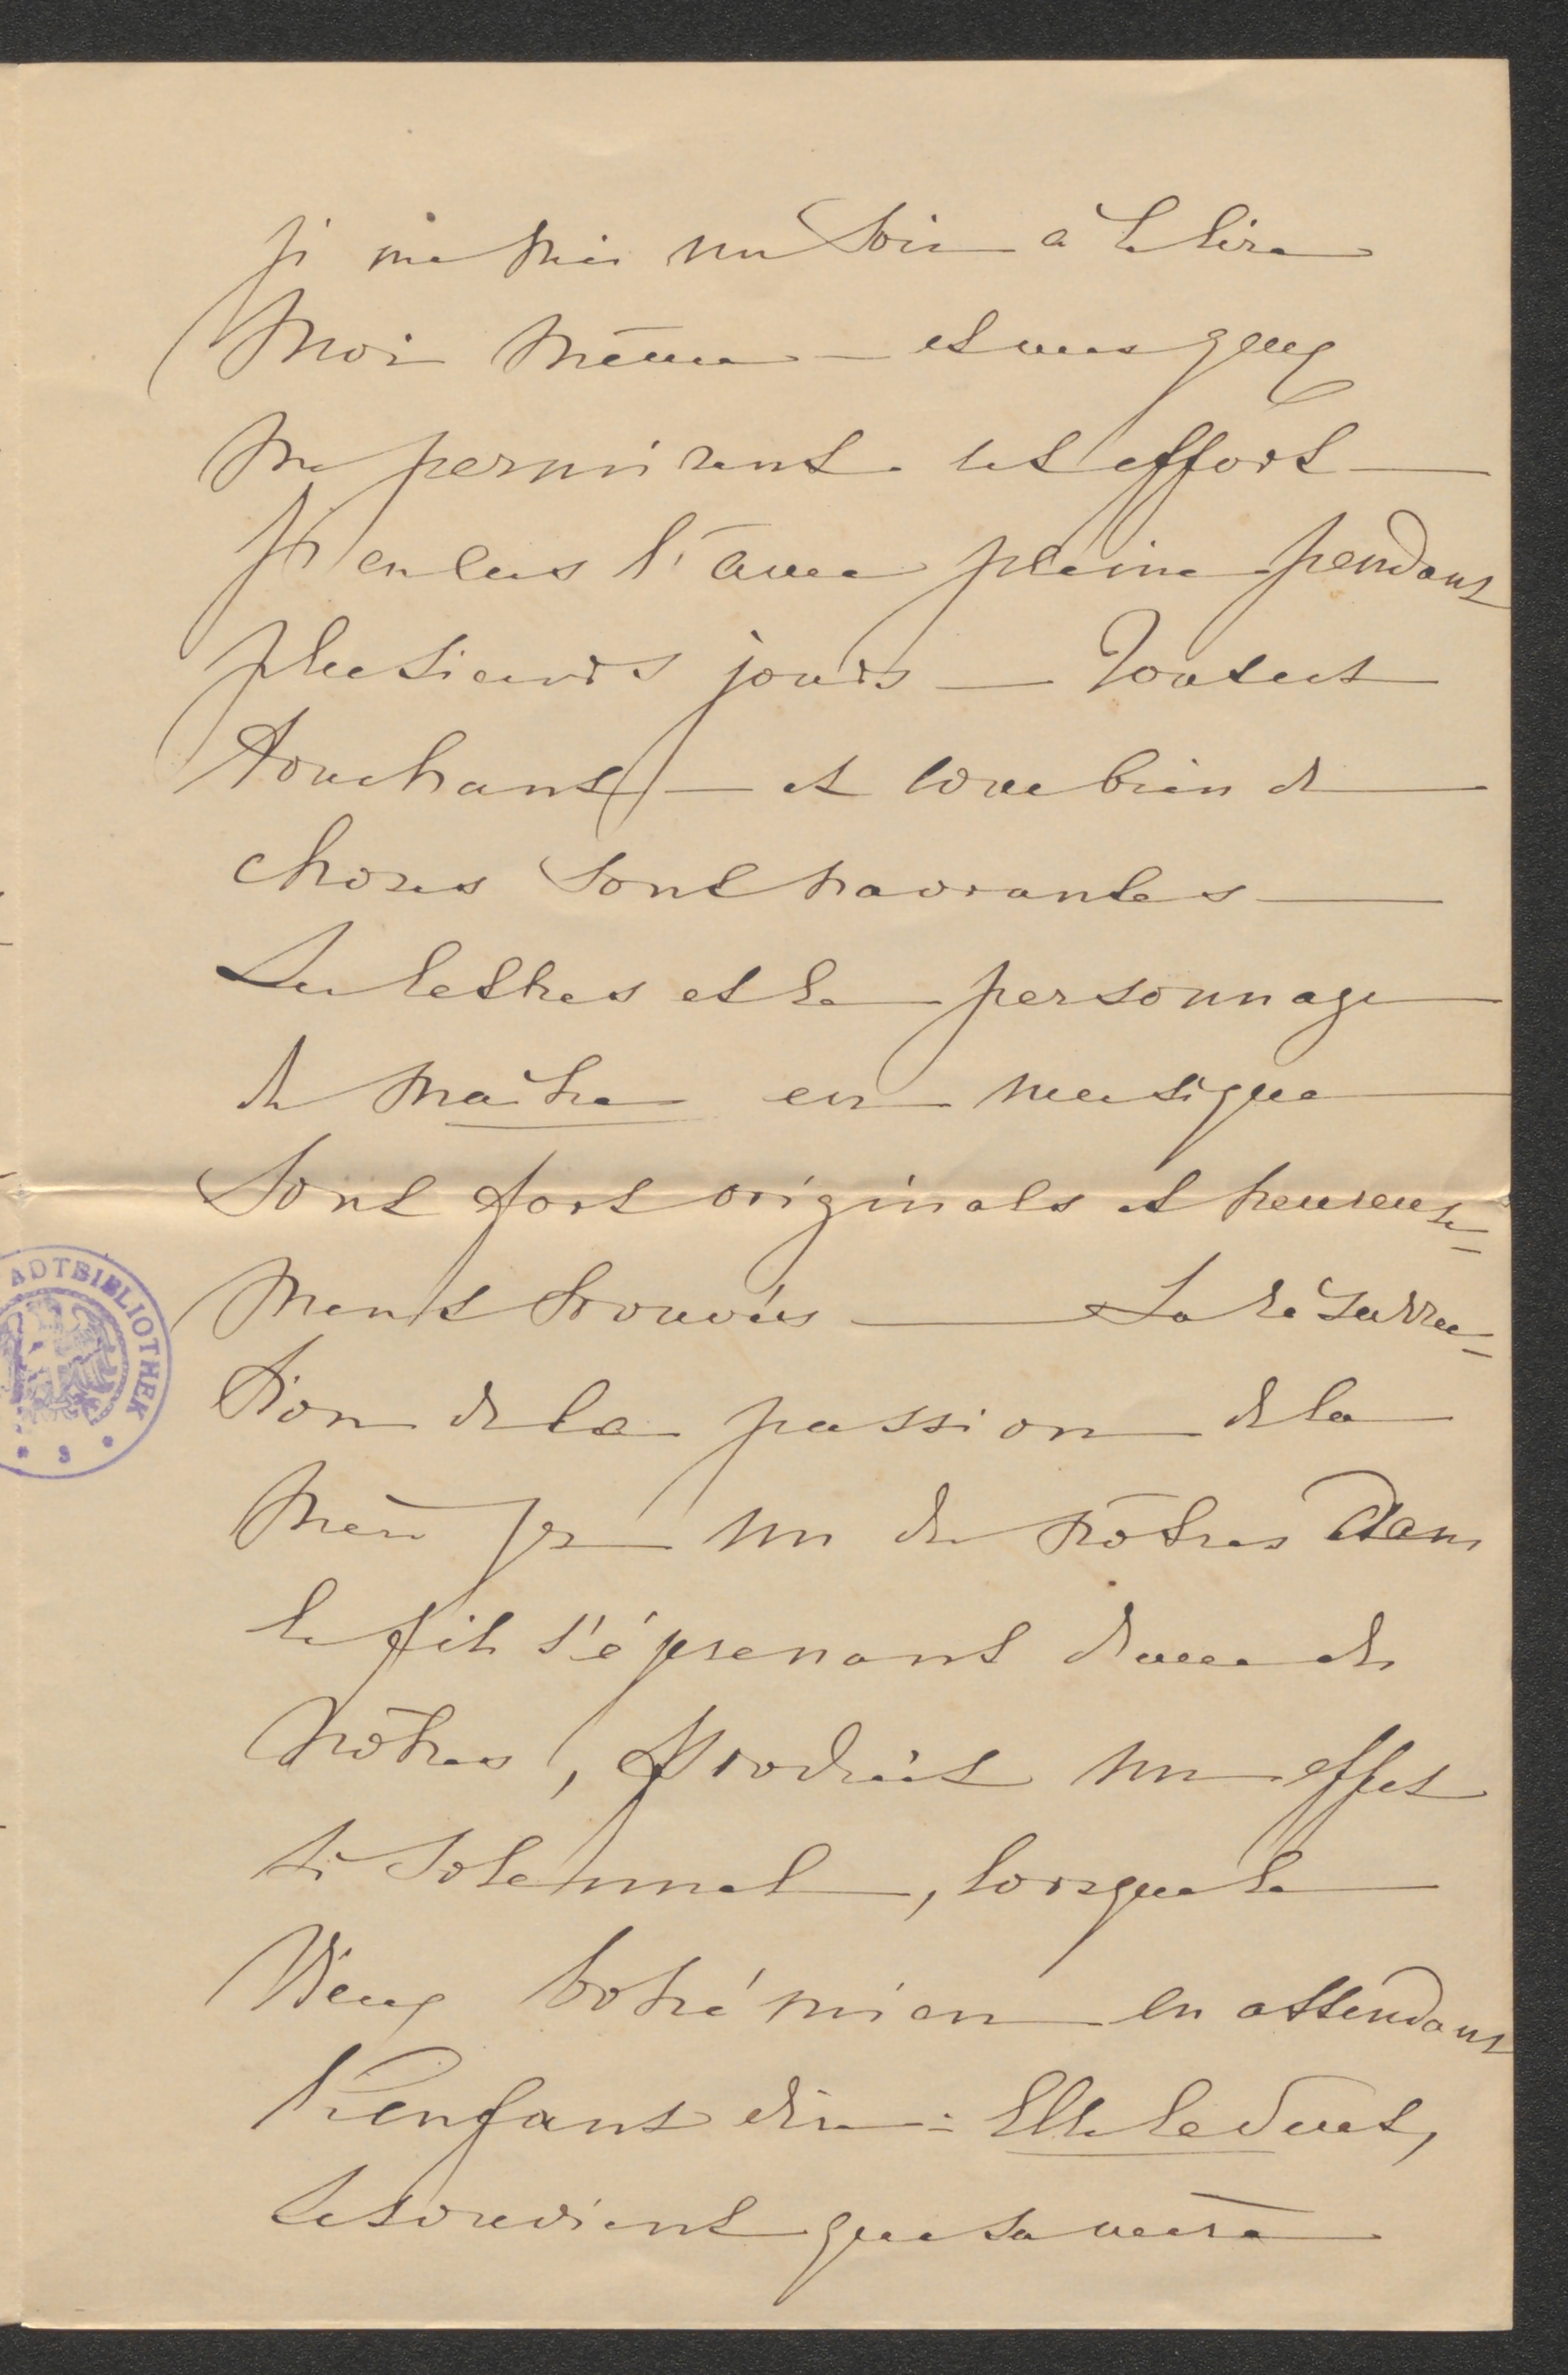 je me mis un soir à le lire
moi même — et mes yeux
me permirent cet effort —
J'en eus l'âme pleine pendant
plusieurs jours — Tout est
touchant — et combien de
choses sont navrantes —
Les lettres et le personnage
de maître en musique
sont fort originals et heureuse=
ment trouvés — La résurrec=
tion de la passion de la
mère pr un de nôtres dans
le fils s'éprenant d'une des
nôtres, produit un effet
si solemnel, lorsque le
vieux bohémien en attendant
l'enfant dire : Elle le veut,
se souvient que sa mère
ADTBIBLIOTHEK